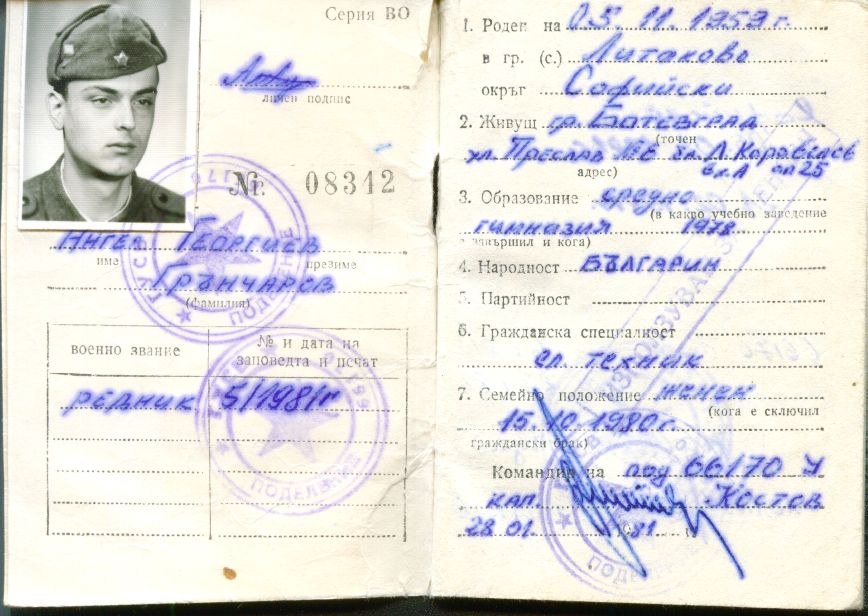 Серия ВО
личен подпис
№ 08312
Ангел Георгиев
име презиме
Грънчаров
(фамилия)
военно звание
№ и дата на заповедта и печат
редник 5/1981г
ПОДЕЛЕНИЕ
ПОДЕЛЕНИЕ
1. Роден на 05.11.1959 г.
в гр. (с.) Литаково
окръг Софийски
2. Живущ гр. Ботевград
(точен
ул. Преслав №8 Л. Каравелов
адрес) вх. А ап 25
3. Образование средно
(в какво учебно заведение
гимназия 1978
е завършил и кога)
4. Народност БЪлгарин
5. Партийност
6. Гражданска специалност
ел. техник
7. Семейно положение женен
(кога е сключил
15.10.1980г.
граждански брак)
Командир на под 66170 У
кап. Костов
28.01 1981 г.